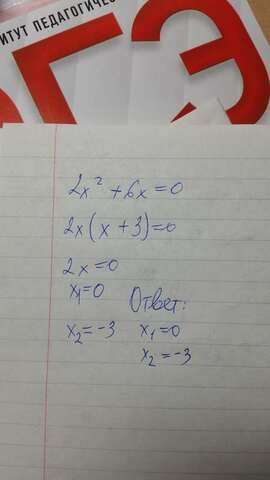 ИТУТ ПЕДАГОГИЧЕС
ОГЭ
2x² + 6x = 0
2x(x + 3) = 0
2x = 0
x₁ = 0
x₂ = -3
Ответ:
x₁ = 0
x₂ = -3